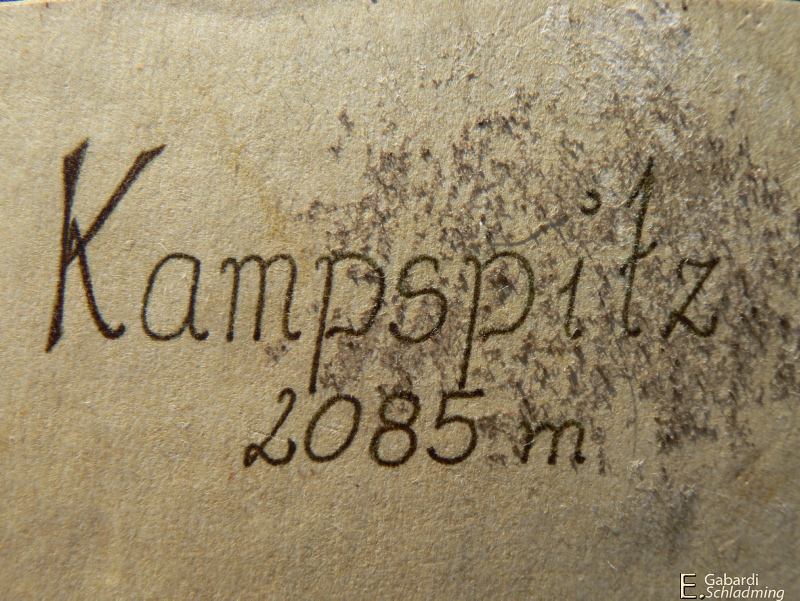 Kampspitz
2085 m
E. Gabardi
Schladming